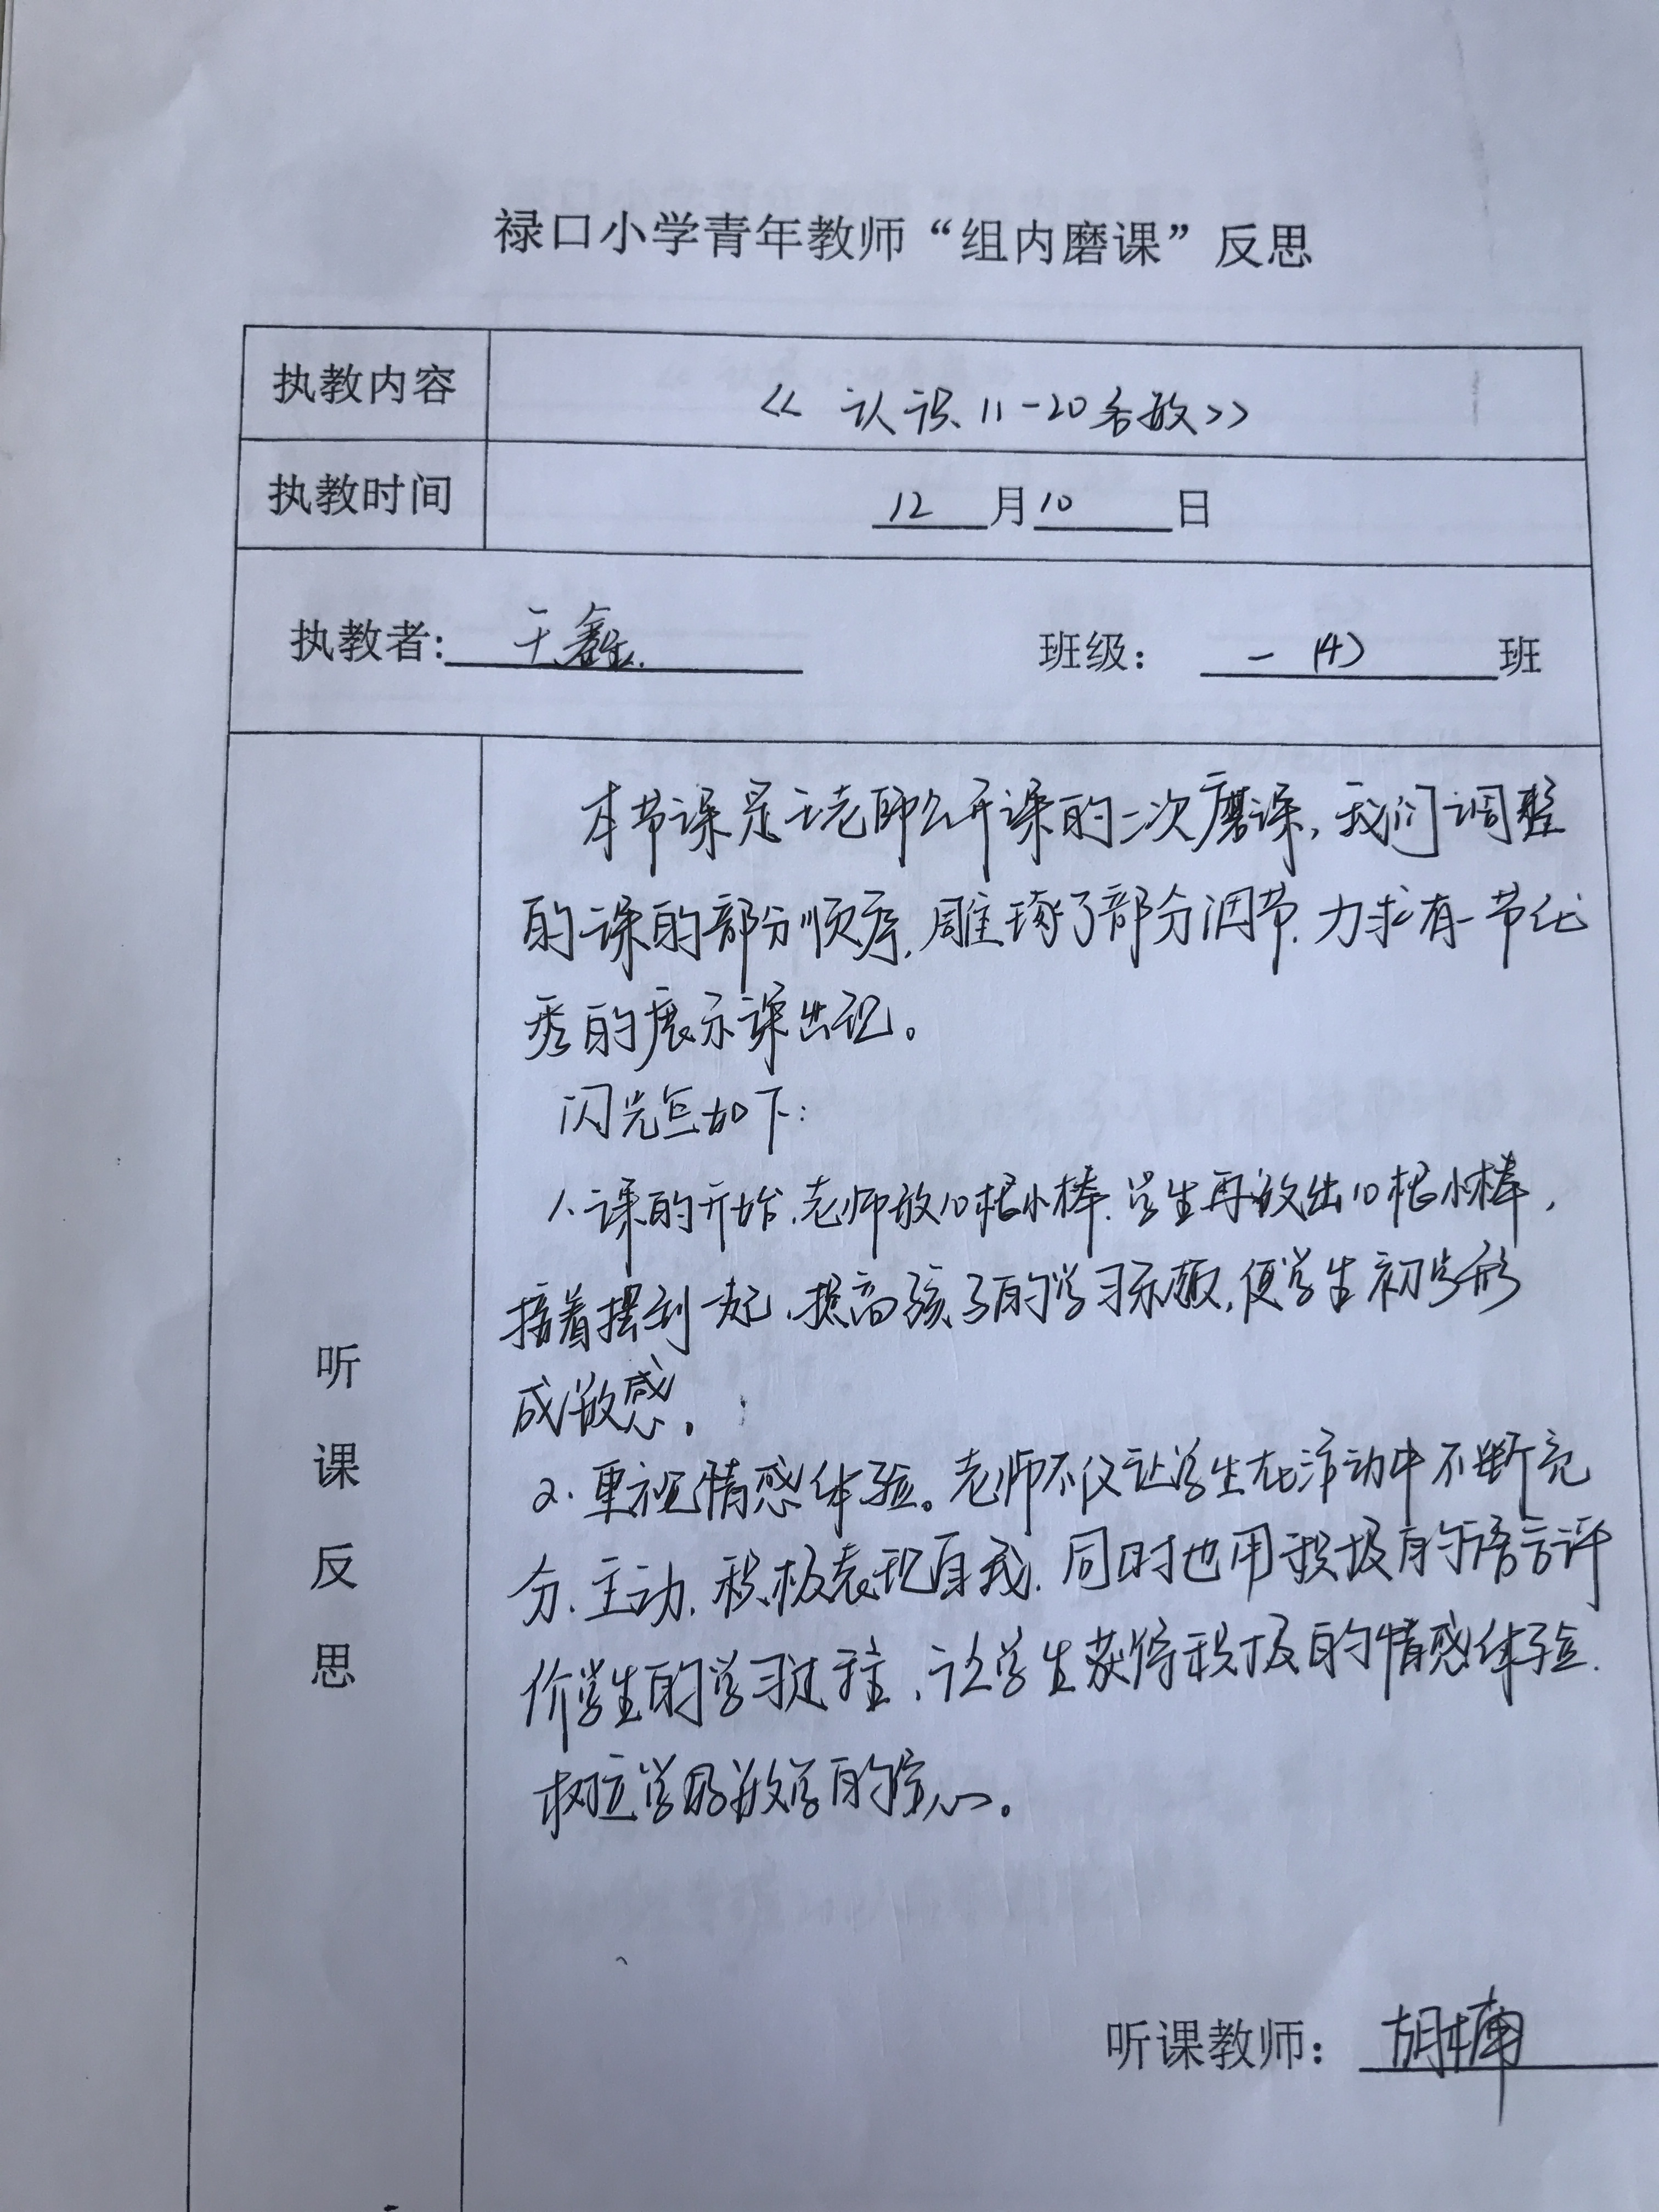 禄口小学青年教师“组内磨课”反思
执教内容
《认识11-20各数》
执教时间
12月10日
执教者:王鑫
班级：一(4)班
听课反思
本节课是王老师公开课的一次磨课，我们调整
的课的部分顺序，雕琢了部分调节，力求有一节优
秀的展示课出现。
闪光点如下：
1.课的开始，老师放10根小棒，学生再放出10根小棒，
接着摆到一起，提高孩子的学习乐趣，使学生初步形
成数感。
2.重视情感体验。老师不仅让学生在活动中不断充
分、主动、积极表现自我，同时也用积极的语言评
价学生的学习过程，让学生获得积极的情感体验，
树立学习数学的信心。
听课教师：胡楠